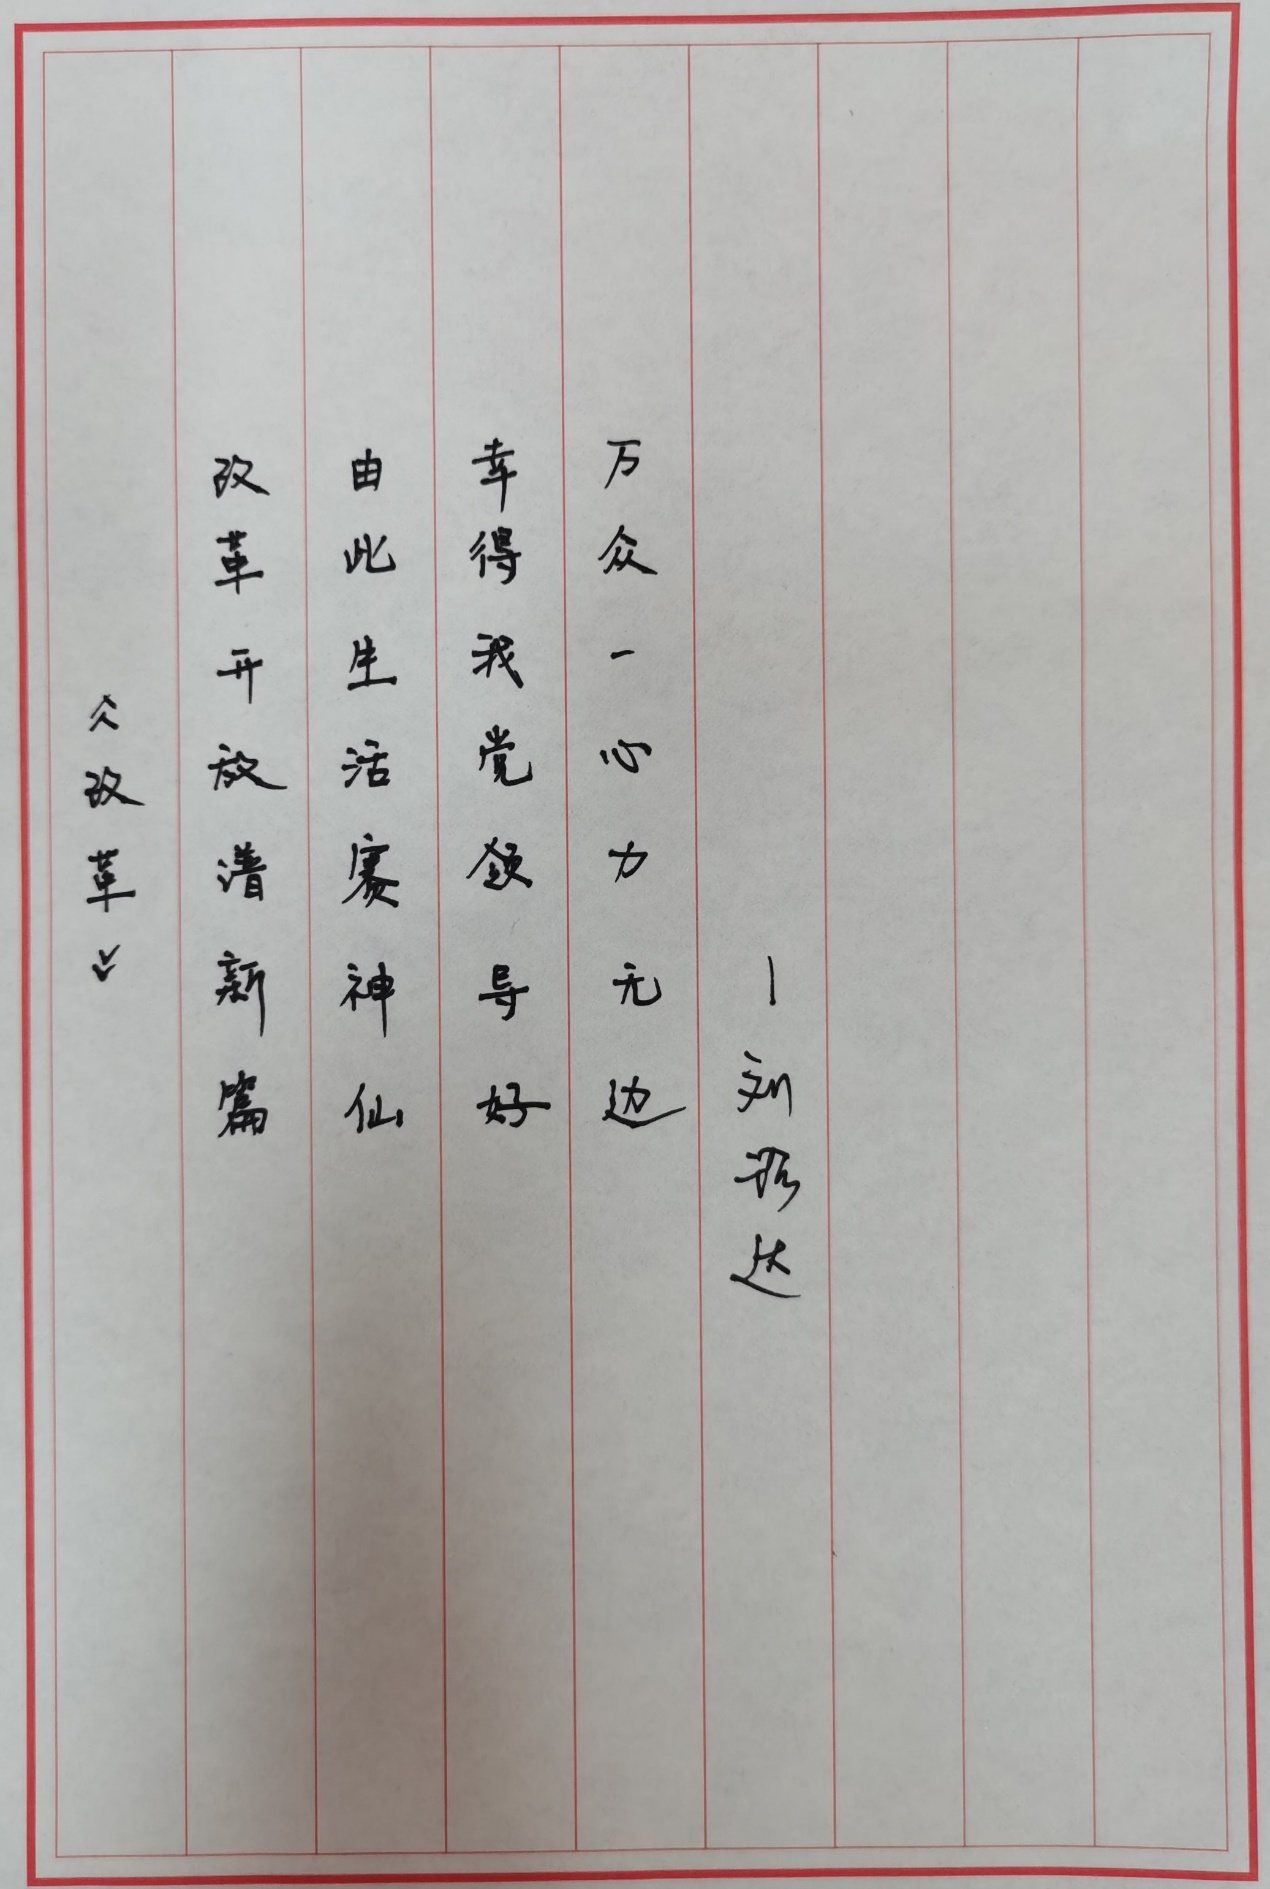 《改革》
改革开放谱新篇
由此生活赛神仙
幸得我党领导好
万众一心力无边
—刘达